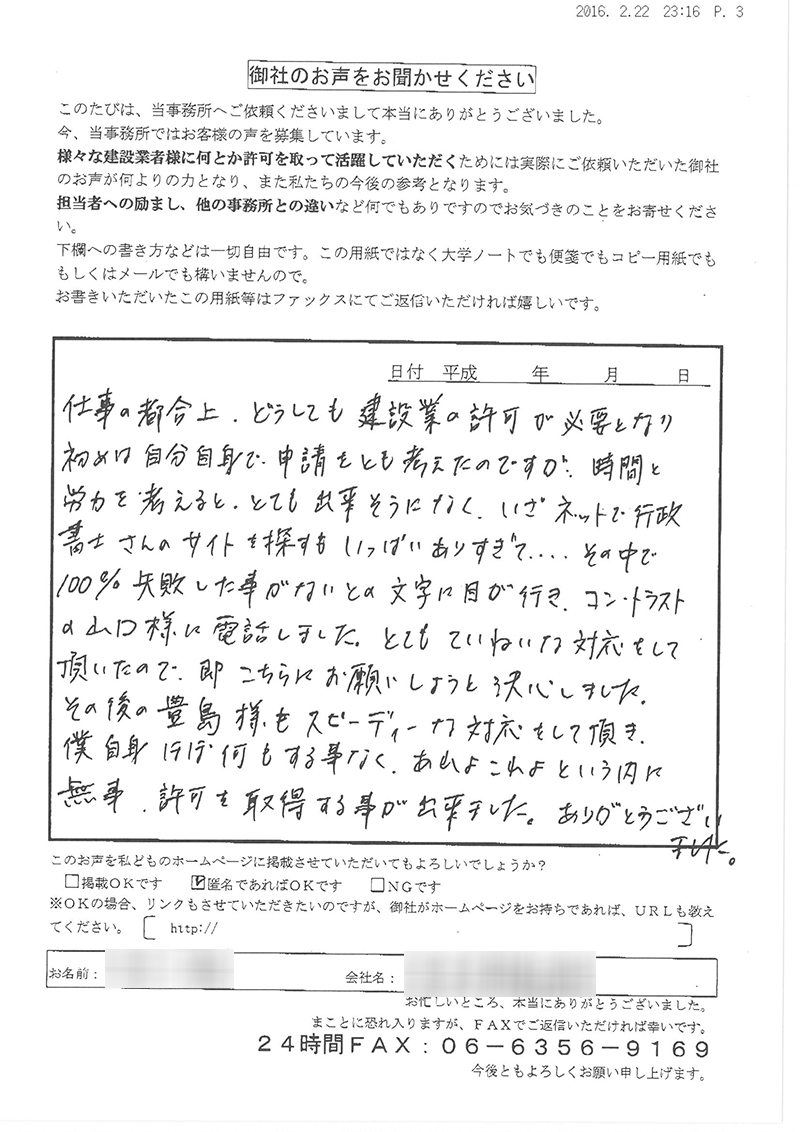 2016. 2.22 23:16 P. 3
御社のお声をお聞かせください
このたびは、当事務所へご依頼くださいまして本当にありがとうございました。
今、当事務所ではお客様の声を募集しています。
様々な建設業者様に何とか許可を取って活躍していただくためには実際にご依頼いただいた御社
のお声が何よりの力となり、また私たちの今後の参考となります。
担当者への励まし、他の事務所との違いなど何でもありですのでお気づきのことをお寄せくださ
い。
下欄への書き方などは一切自由です。この用紙ではなく大学ノートでも便箋でもコピー用紙でも
もしくはメールでも構いませんので。
お書きいただいたこの用紙等はファックスにてご返信いただければ嬉しいです。
日付 平成 年 月 日
仕事の都合上、どうしても建設業の許可が必要となり
初めは自分自身で、申請をとも考えたのですが、時間と
労力を考えると、とても出来そうになく、いざネットで行政
書士さんのサイトを探すもいっぱいありすぎて‥‥その中で
100% 失敗した事がないとの文字に目が行き、コン・トラスト
の山口様に電話しました。とてもていねいな対応をして
頂いたので、即こちらにお願いしようと決心しました。
その後の豊島様もスピーディーな対応をして頂き、
僕自身ほぼ何もする事なく、あれよこれよという内に
無事、許可を取得する事が出来ました。ありがとうござい
ました。
このお声を私どものホームページに掲載させていただいてもよろしいでしょうか？
□掲載OKです ☑匿名であればOKです □NGです
※OKの場合、リンクもさせていただきたいのですが、御社がホームページをお持ちであれば、URLも教え
てください。 [ http:// ]
お名前： 会社名：
お忙しいところ、本当にありがとうございました。
まことに恐れ入りますが、FAXでご返信いただければ幸いです。
24時間FAX：06－6356－9169
今後ともよろしくお願い申し上げます。